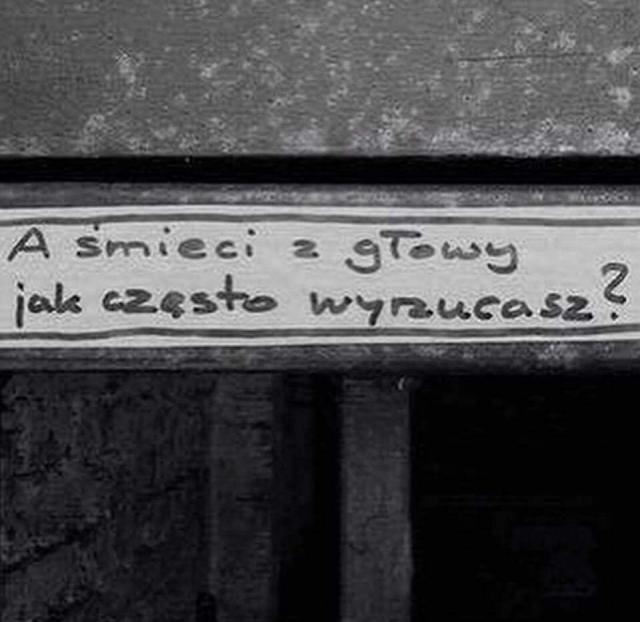 A śmieci z głowy
jak często wyrzucasz?